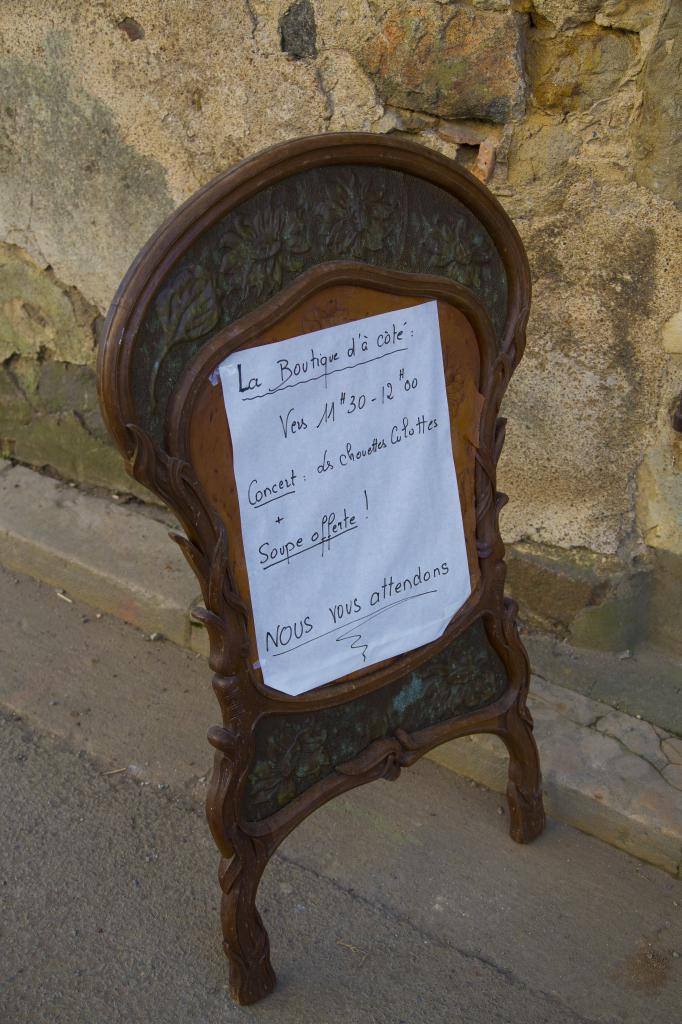 La Boutique d'à côté :
Vers 11H30 - 12H00
Concert : des Chouettes Culottes
+
Soupe offerte !
NOUS vous attendons